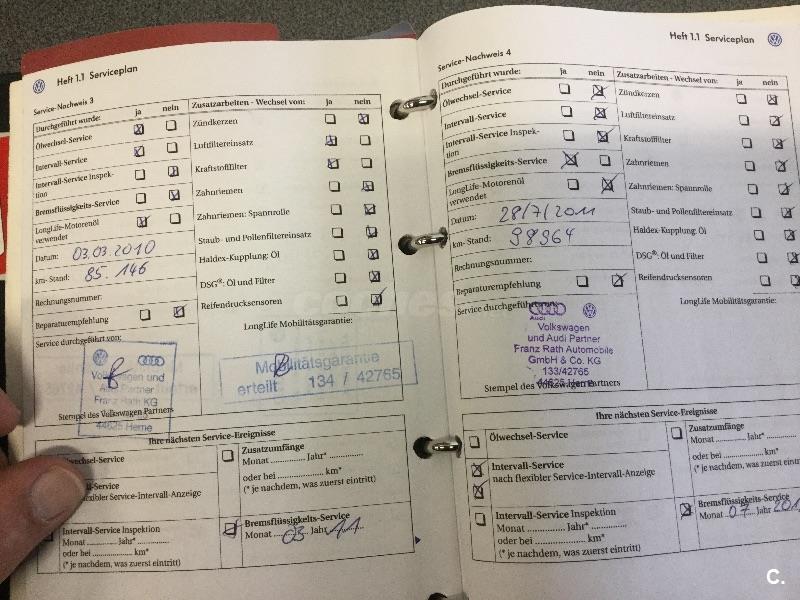 Heft 1.1 Serviceplan
Service-Nachweis 3
Durchgeführt wurde: ja nein
Ölwechsel-Service
Intervall-Service
Intervall-Service Inspek-
tion
Bremsflüssigkeits-Service
LongLife-Motorenöl
verwendet
Datum: 03.03.2010
km-Stand: 85.146
Rechnungsnummer:
Reparaturempfehlung
Service durchgeführt von:
Volkswagen und
Audi Partner
Franz Rath KG
44625 Herne
Stempel des Volkswagen Partners
Zusatzarbeiten - Wechsel von: ja nein
Zündkerzen
Luftfiltereinsatz
Kraftstofffilter
Zahnriemen
Zahnriemen: Spannrolle
Staub- und Pollenfiltereinsatz
Haldex-Kupplung: Öl
DSG®: Öl und Filter
Reifendrucksensoren
LongLife Mobilitätsgarantie:
Mobilitätsgarantie
erteilt 134 / 42765
Ihre nächsten Service-Ereignisse
-Service
flexibler Service-Intervall-Anzeige
Intervall-Service Inspektion
Monat ............ Jahr*
oder bei ............ km*
(* je nachdem, was zuerst eintritt)
Zusatzumfänge
Monat ............ Jahr*
oder bei ............ km*
(* je nachdem, was zuerst eintritt)
Bremsflüssigkeits-Service
Monat 03 Jahr 11
Heft 1.1 Serviceplan
Service-Nachweis 4
Durchgeführt wurde: ja nein
Ölwechsel-Service
Intervall-Service
Intervall-Service Inspek-
tion
Bremsflüssigkeits-Service
LongLife-Motorenöl
verwendet
Datum: 28/7/2011
km-Stand: 98964
Rechnungsnummer:
Reparaturempfehlung
Service durchgeführt von:
Audi
Volkswagen
und Audi Partner
Franz Rath Automobile
GmbH & Co. KG
133/42765
44625 Herne
Stempel des Volkswagen Partners
Zusatzarbeiten - Wechsel von: ja nein
Zündkerzen
Luftfiltereinsatz
Kraftstofffilter
Zahnriemen
Zahnriemen: Spannrolle
Staub- und Pollenfiltereinsatz
Haldex-Kupplung: Öl
DSG®: Öl und Filter
Reifendrucksensoren
LongLife Mobilitätsgarantie:
Ihre nächsten Service-Ereignisse
Ölwechsel-Service
Intervall-Service
nach flexibler Service-Intervall-Anzeige
Intervall-Service Inspektion
Monat ............ Jahr*
oder bei ............ km*
(* je nachdem, was zuerst eintritt)
Zusatzumfänge
Monat ............ Jahr*
oder bei ............ km*
(* je nachdem, was zuerst eintritt)
Bremsflüssigkeits-Service
Monat 07 Jahr
C.